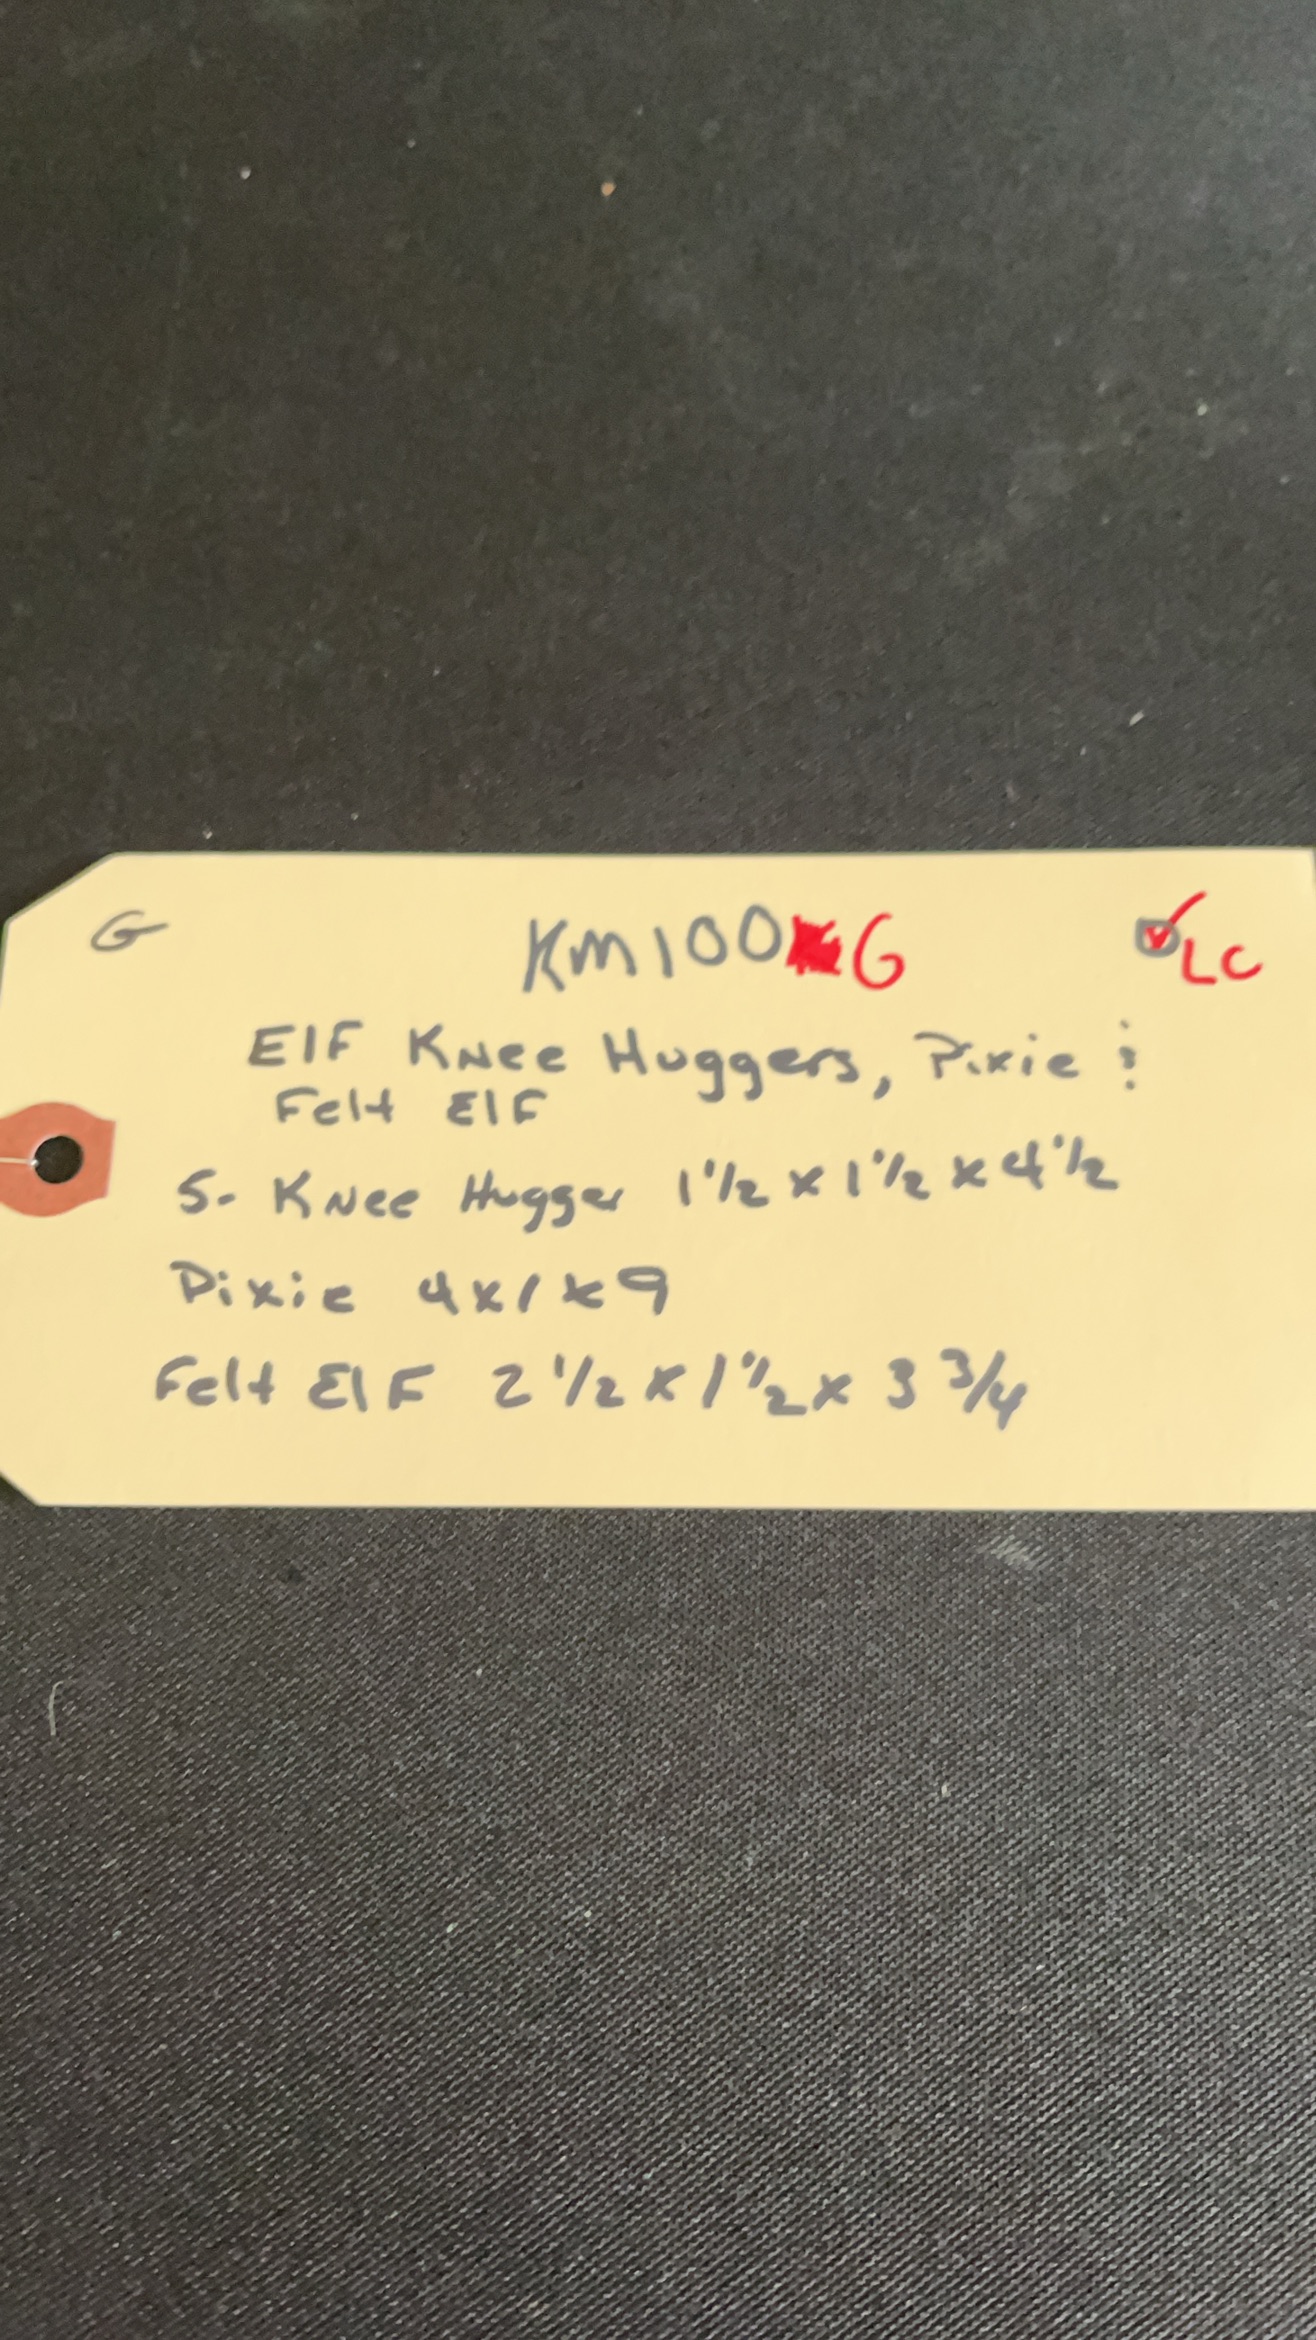 G KM100 G LC
ElF Knee Huggers, Pixie &
Felt ElF
5- Knee Hugger 1 1/2 x 1 1/2 x 4 1/2
Pixie 4x1x9
Felt ElF 2 1/2 x 1 1/2 x 3 3/4